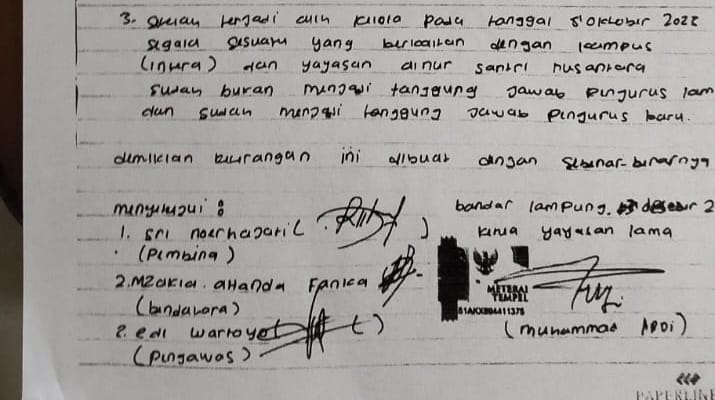 3. setelah terjadi alih kelola pada tanggal 5 oktober 2022
segala sesuatu yang berkaitan dengan kampus
(inura) dan yayasan ainur santri nusantara
sudah bukan menjadi tanggung jawab pengurus lam
dan sudah menjadi tanggung jawab pengurus baru.
demikian keterangan ini dibuat dengan sebenar-benarnya
menyetujui :
bandar lampung, 2
1. sri noerhajari ( )
ketua yayasan lama
(Pembina)
2. Mzakia. aHanda Fanica
METERAI
TEMPEL
(bendahara)
2. edi waroyo ( )
(muhammad ADDi)
(pengawas)
PAPERLINE